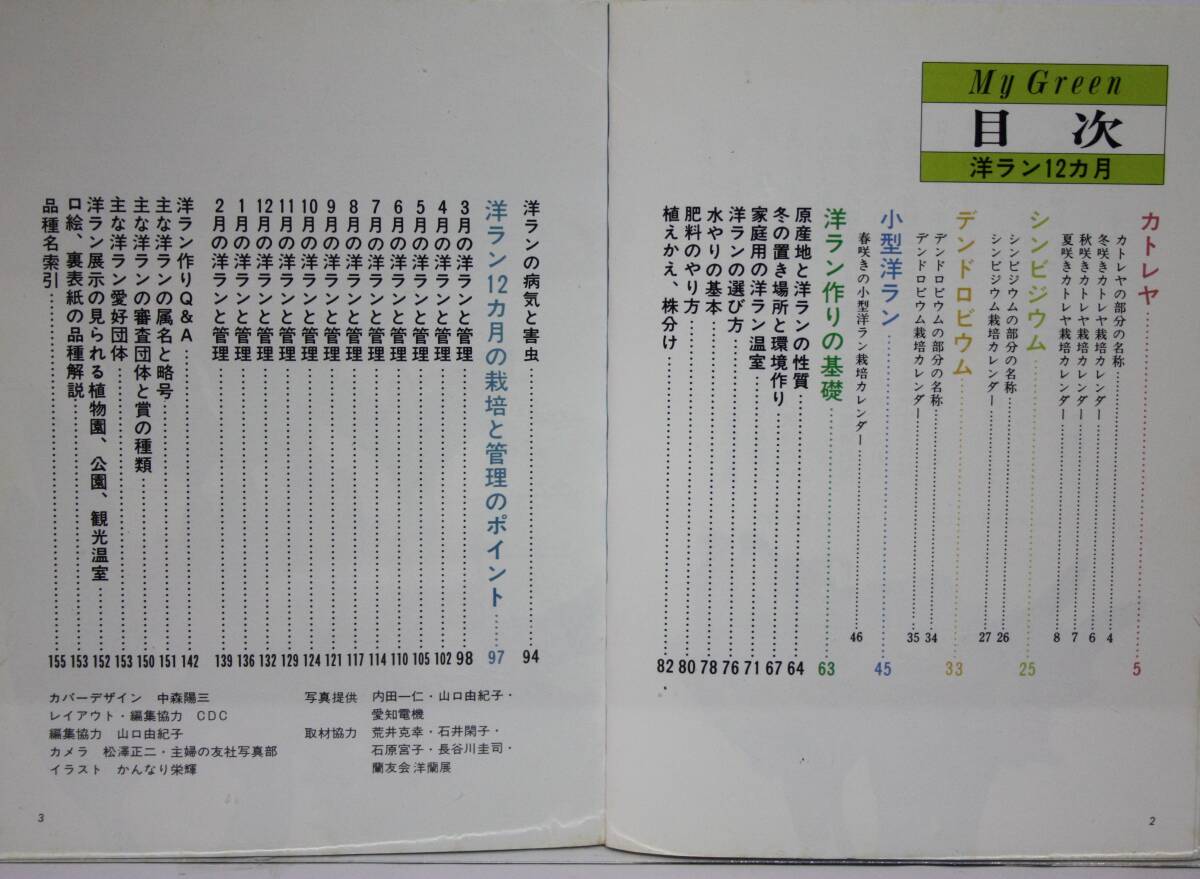 My Green
目次
洋ラン12カ月
カトレヤ……5
カトレヤの部分の名称……4
冬咲きカトレヤ栽培カレンダー……6
秋咲きカトレヤ栽培カレンダー……7
夏咲きカトレヤ栽培カレンダー……8
シンビジウム……25
シンビジウムの部分の名称……26
シンビジウム栽培カレンダー……27
デンドロビウム……33
デンドロビウムの部分の名称……34
デンドロビウム栽培カレンダー……35
小型洋ラン……45
春咲きの小型洋ラン栽培カレンダー……46
洋ラン作りの基礎……63
原産地と洋ランの性質……64
冬の置き場所と環境作り……67
家庭用の洋ラン温室……71
洋ランの選び方……76
水やりの基本……78
肥料のやり方……80
植えかえ、株分け……82
2
洋ランの病気と害虫……94
洋ラン12カ月の栽培と管理のポイント……97
3月の洋ランと管理……98
4月の洋ランと管理……102
5月の洋ランと管理……105
6月の洋ランと管理……110
7月の洋ランと管理……114
8月の洋ランと管理……117
9月の洋ランと管理……121
10月の洋ランと管理……124
11月の洋ランと管理……129
12月の洋ランと管理……132
1月の洋ランと管理……136
2月の洋ランと管理……139
洋ラン作りQ&A……142
主な洋ランの属名と略号……151
主な洋ランの審査団体と賞の種類……150
主な洋ラン愛好団体……153
洋ラン展示の見られる植物園、公園、観光温室……152
口絵、裏表紙の品種解説……153
品種名索引……155
カバーデザイン 中森陽三
レイアウト・編集協力 CDC
編集協力 山口由紀子
カメラ 松澤正二・主婦の友社写真部
イラスト かんなり栄輝
写真提供 内田一仁・山口由紀子・
愛知電機
取材協力 荒井克幸・石井閑子・
石原宮子・長谷川圭司・
蘭友会洋蘭展
3